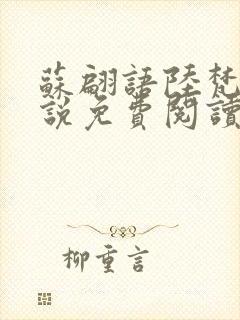 蘇翩語陸梵
說免費閱讀
柳重言